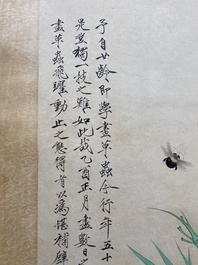 予自廿齡即學畫草蟲今行年五十
是豈獨一技之難如此哉乙酉正月畫數日
畫草蟲飛躍動止之態得者以為堪補壁